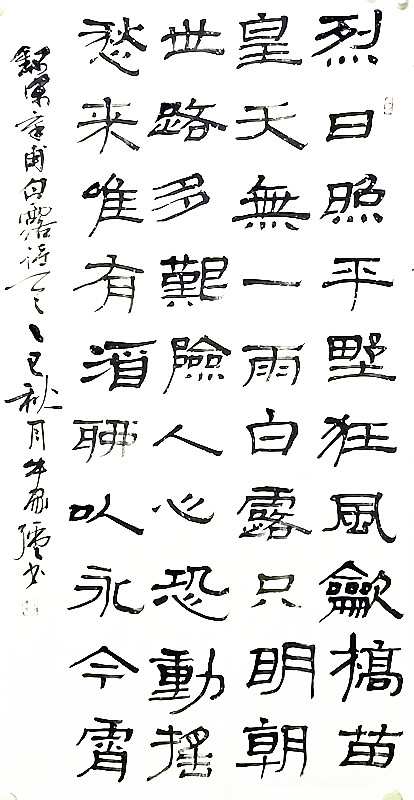 烈日照平野狂風龡槁苗
皇天無一雨白露只明朝
世路多艱險人心恐動搖
愁来唯有酒聊以永今宵
錄宋章甫白露詩一首乙巳秋月牛書